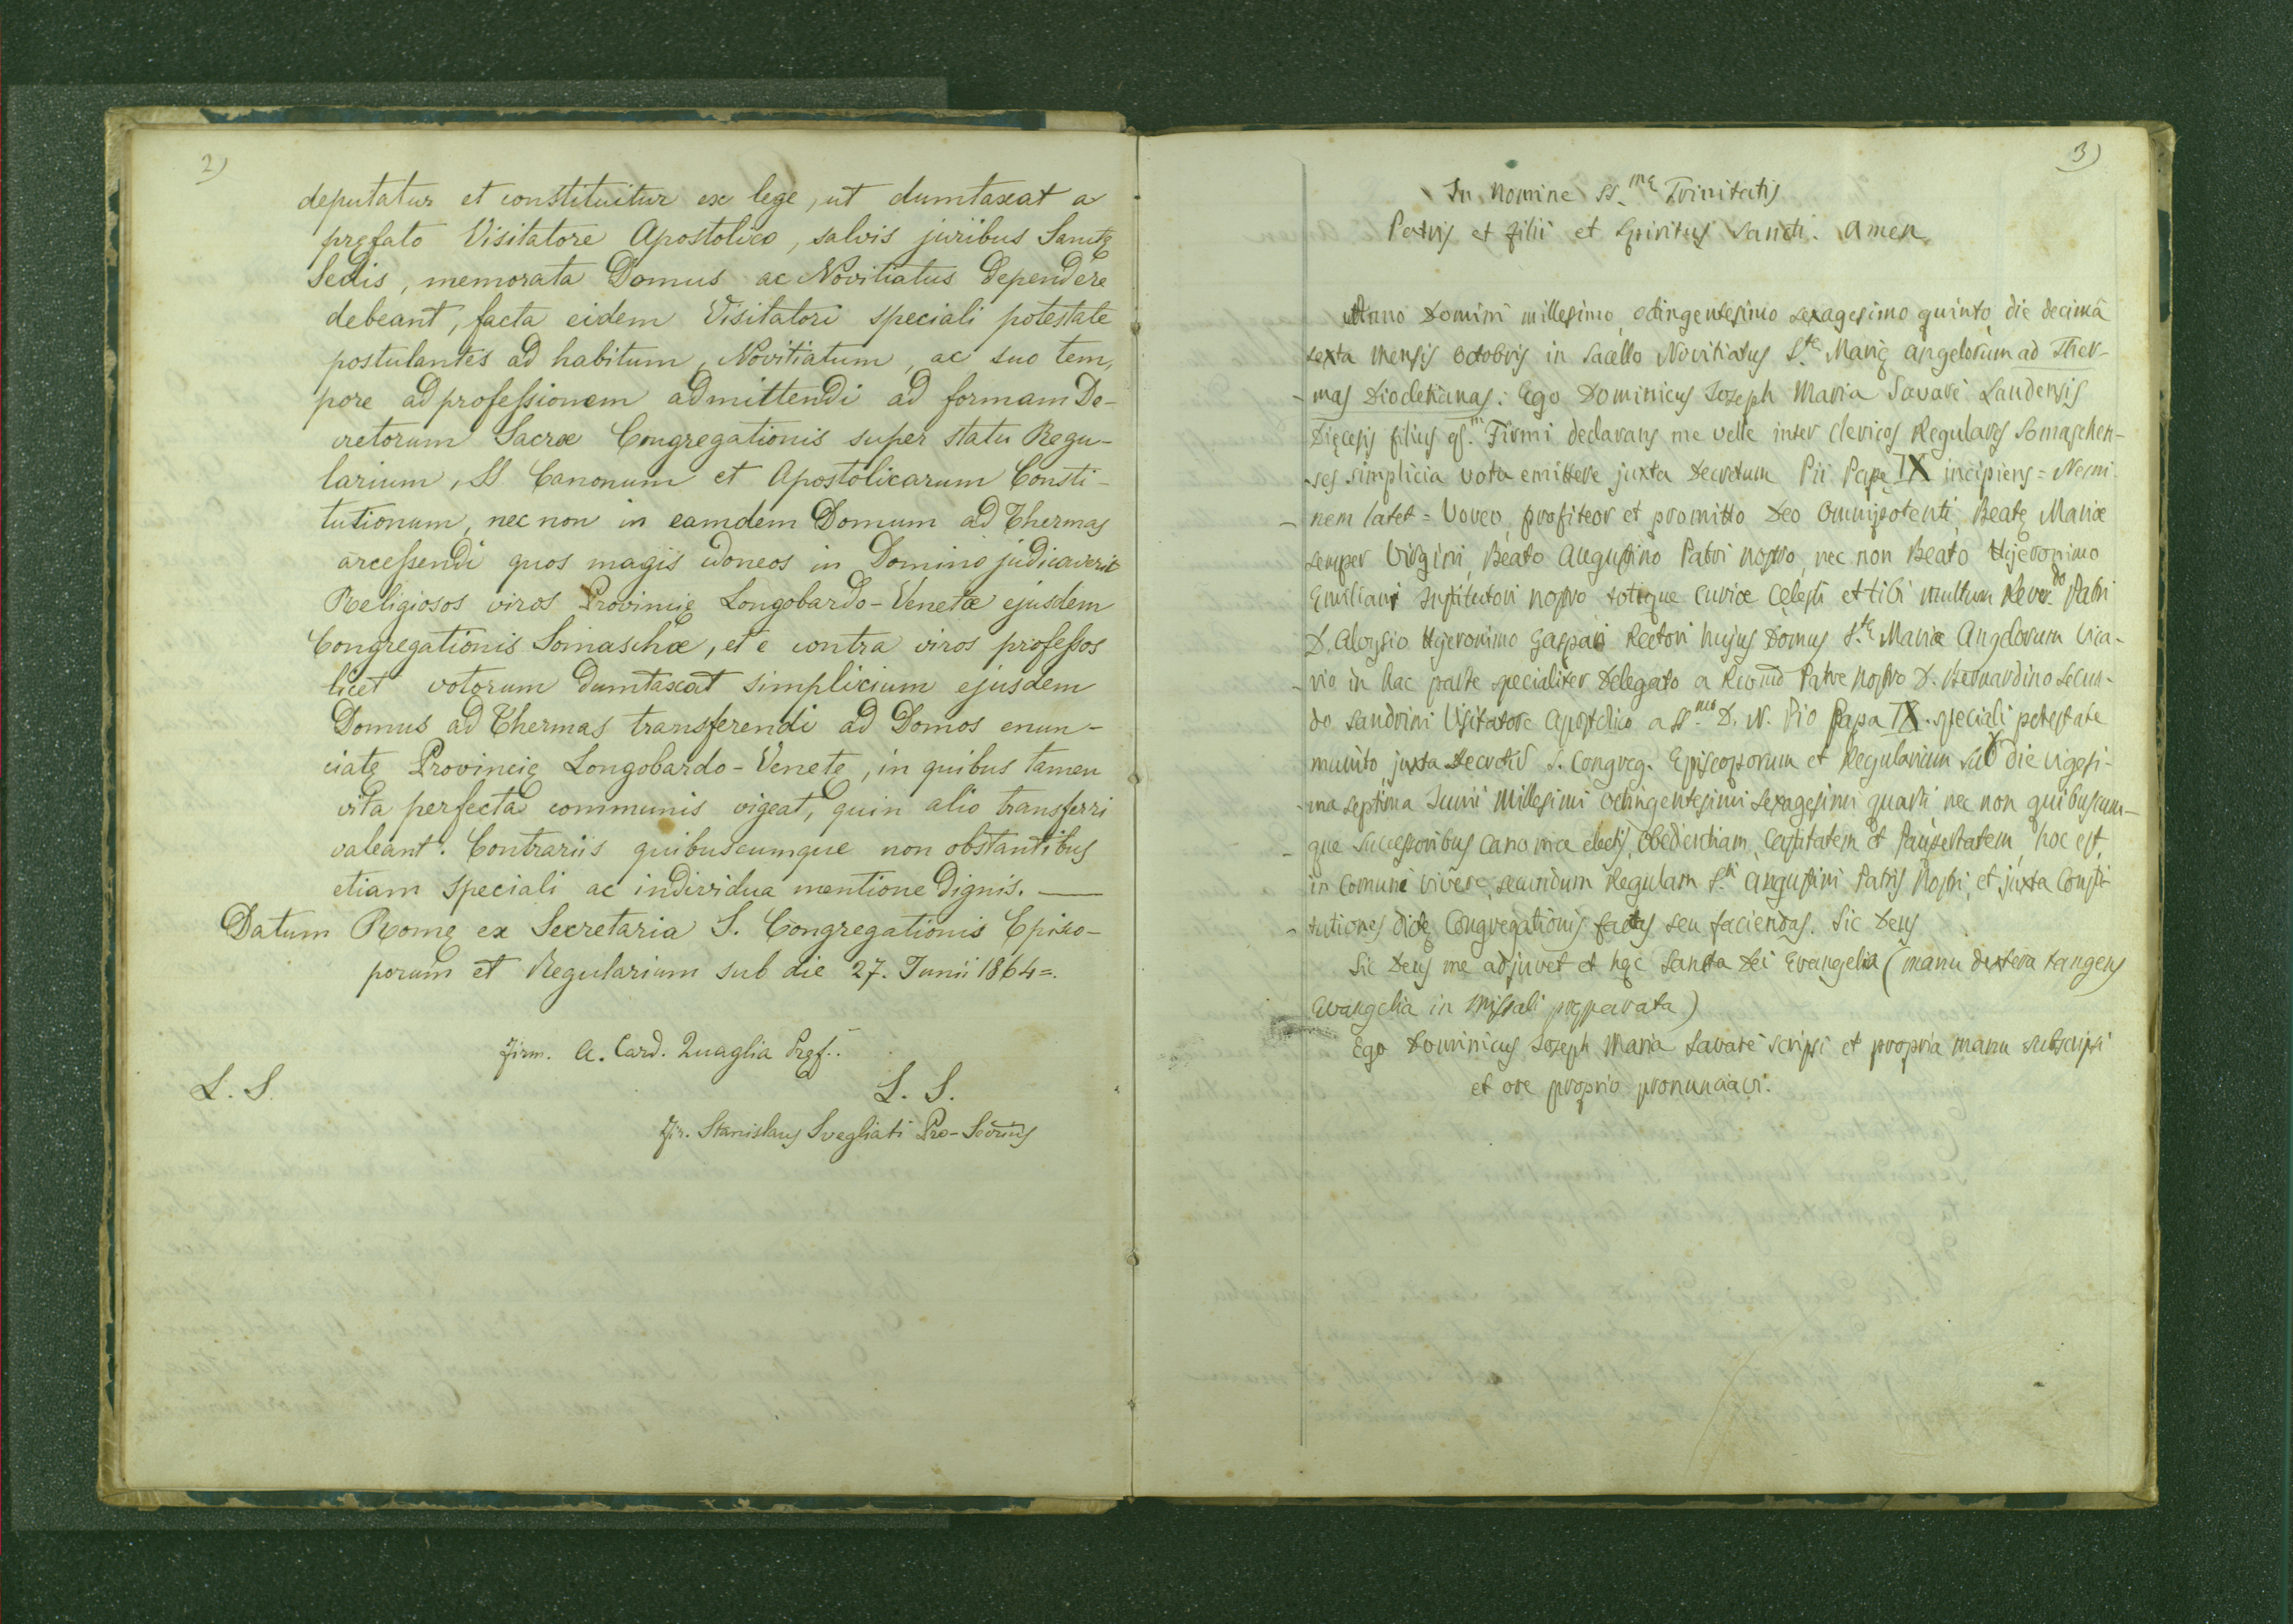 2)
deputatur et constituitur ex lege, ut dumtaxat a
pręfato Visitatore Apostolico, salvis juribus Sanctę
Sedis, memorata Domus ac Novitiatus dependere
debeant, facta eidem Visitatori speciali potestate
postulantes ad habitum, Novitiatum, ac suo tem,
pore ad professionem admittendi ad formam De-
cretorum Sacræ Congregationis super statu Regu-
larium, SS Canonum et Apostolicarum Consti-
tutionum, nec non in eamdem Domum ad Thermas
arcessendi quos magis idoneos in Domino judicaverit
Religiosos viros Provincię Longobardo-Venetæ ejusdem
Congregationis Somaschæ, et e contra viros professos
licet votorum dumtaxat simplicium ejusdem
Domus ad Thermas transferendi ad Domos enun-
ciatę Provincię Longobardo-Venetę, in quibus tamen
vita perfecta communis vigeat, quin alio transferri
valeant. Contrariis quibuscumque non obstantibus
etiam speciali ac individua mentione dignis. —
Datum Romę ex Secretaria S. Congregationis Episco-
porum et Regularium sub die 27. Junii 1864=.
Firm. A. Card. Quaglia Pręf..
L. S. L. S.
Fir. Stanislaus Svegliati Pro-Secrius
3)
In Nomine SS.mę Trinitatis
Patris et Filii et Spiritus Sancti. Amen.
Anno Domini millesimo octingentesimo sexagesimo quinto, die decima
sexta mensis Octobris in Sacello Novitiatus S.tę Marię Angelorum ad Ther-
- mas Diocletianas: Ego Dominicus Joseph Maria Savarè Laudensis
Dięcesis filius qs.m Firmi declarans me velle inter Clericos Regulares Somaschen-
-ses simplicia vota emittere juxta Decretum Pii Papę IX incipiens = Nemi-
- nem latet = Voveo, profiteor et promitto Deo Omnipotenti, Beatę Mariæ
semper Virgini, Beato Augustino Patri nostro, nec non Beato Hieronimo
Emiliani Institutori nostro totique Curiæ Cęlesti et tibi multum Rever.do Patri
D. Aloysio Hyeronimo Gaspari Rectori hujus Domus S.tę Mariæ Angelorum Vica-
- rio in hac parte specialiter Delegato a Rev̄mo Patre Nostro D. Bernardino Secun-
do Sandrini Visitatore Apostolico a SS.mo D. N. Pio Papa IX. speciali potestate
munito juxta Decretū S. Congreg. Episcoporum et Regularium sub die vigesi-
-ma septima Junii Millesimi octingentesimi sexagesimi quarti nec non quibuscum-
- que Successoribus canonice electis, Obedientiam, Castitatem et Paupertatem, hoc est,
in Comuni vivere, secundum Regulam S.ti Augustini Patris Nostri, et juxta Consti-
- tutiones dictę Congregationis factas seu faciendas. Sic Deus
Sic Deus me adjuvet et hęc Sancta Dei Evangelia (manu dextera tangens
Evangelia in Missali pręparata)
Ego Dominicus Joseph Maria Savarè scripsi et propria manu subscripsi
et ore proprio pronunciavi.